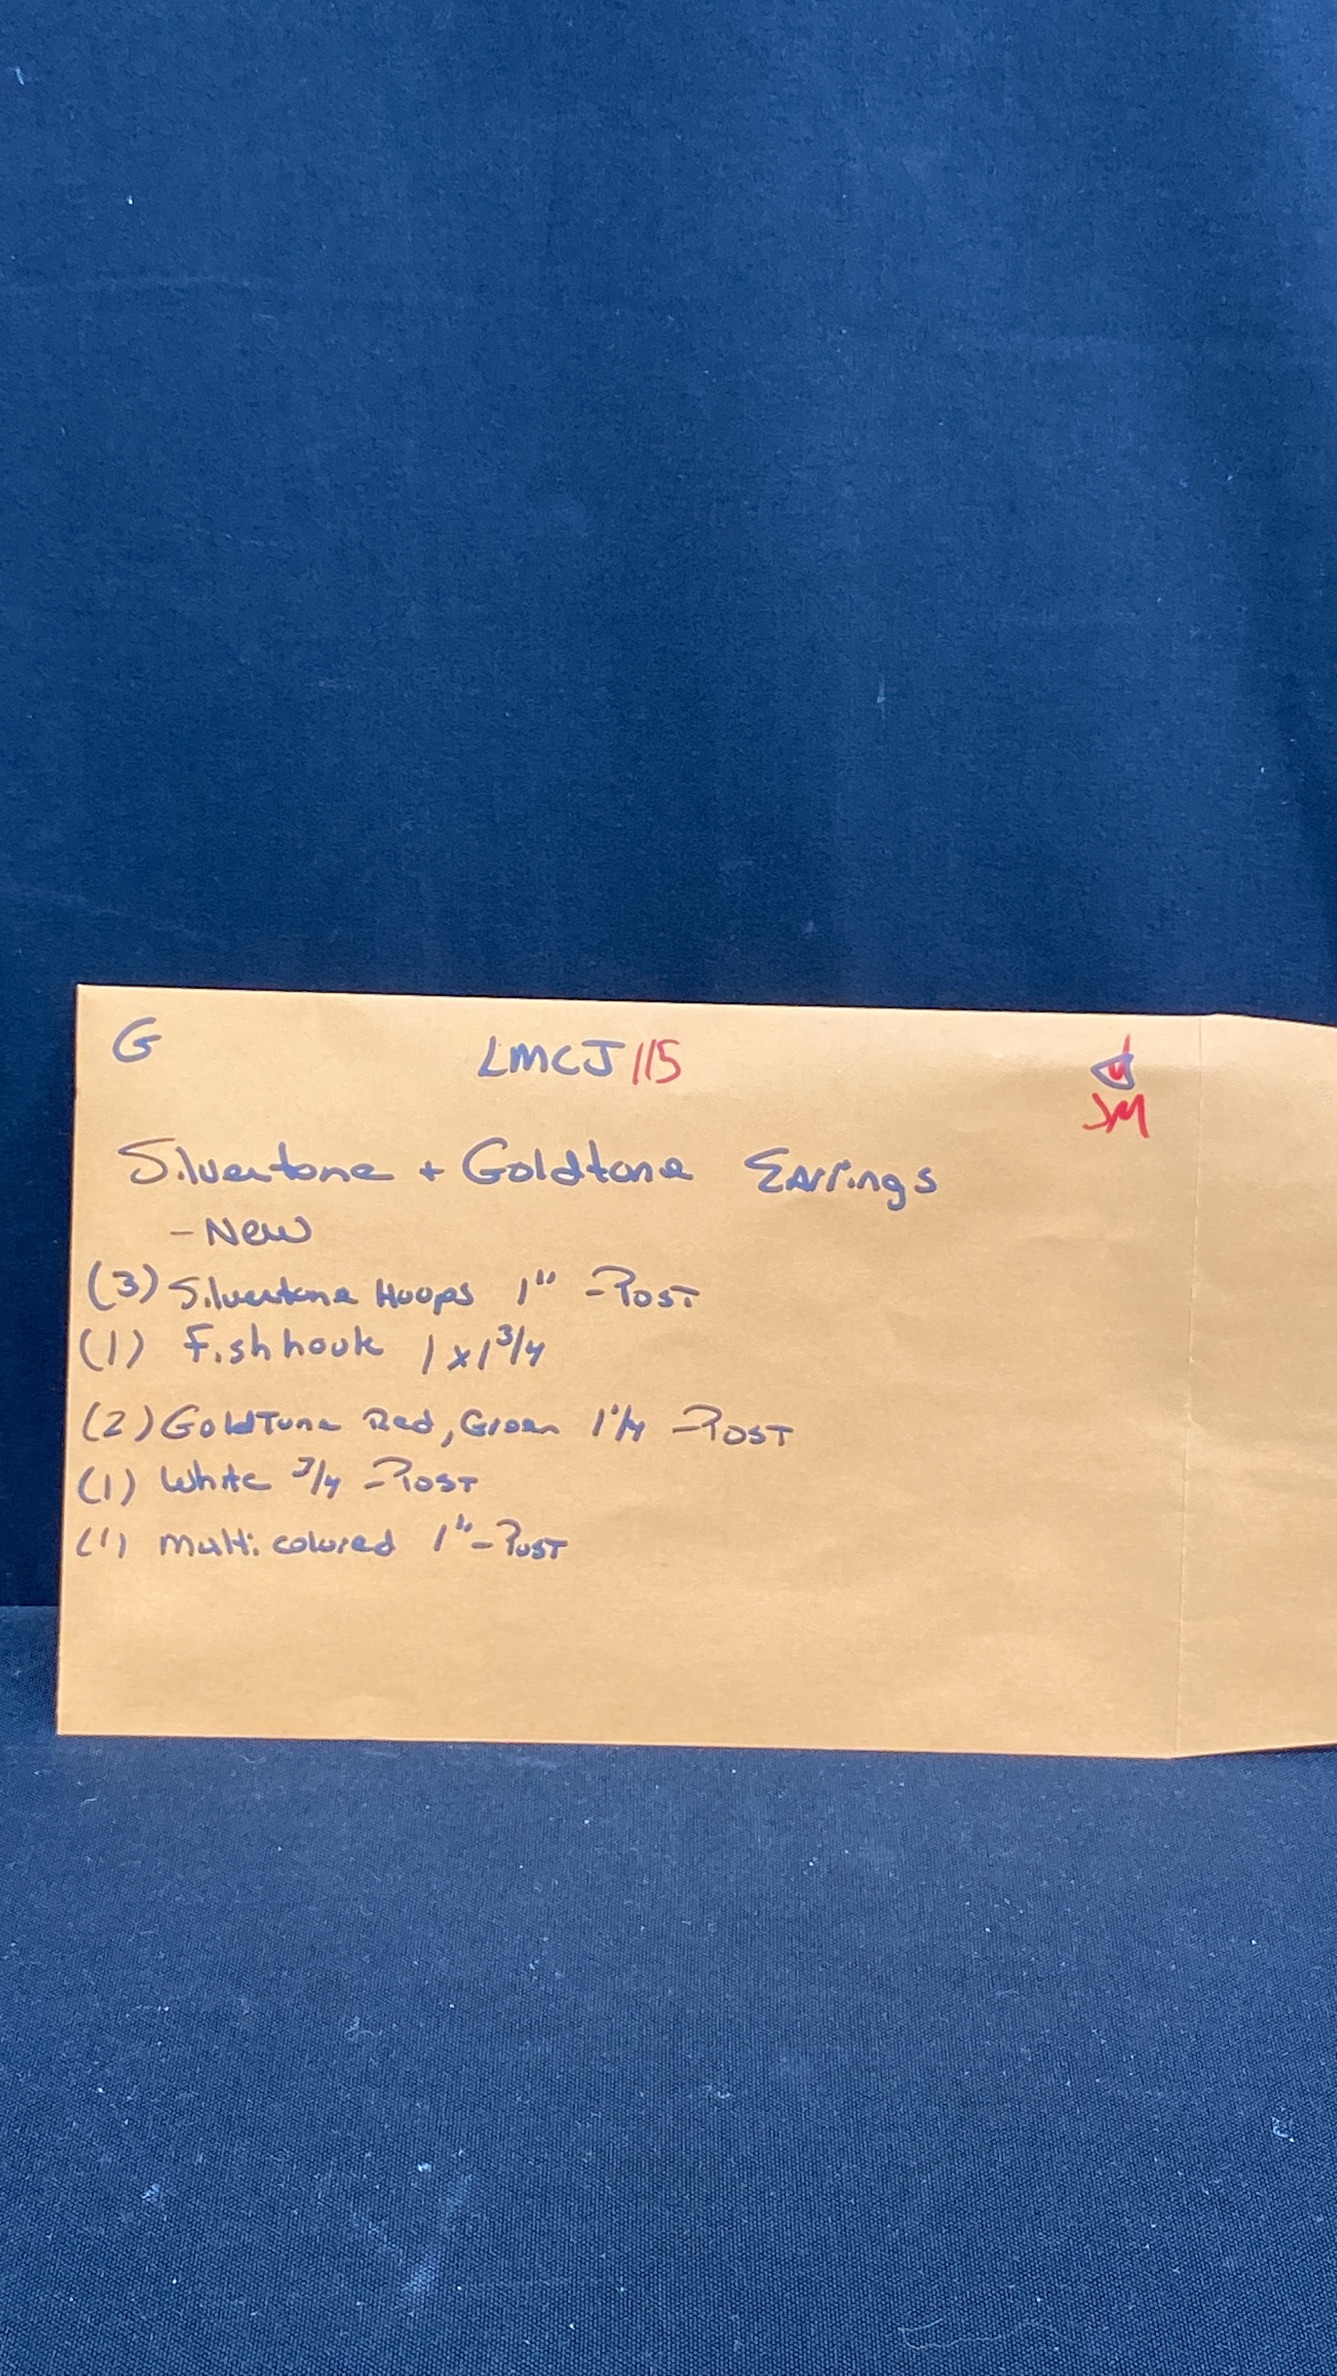 G LMCJ115
JM
Silvertone + Goldtone Earrings
- New
(3) Silvertone Hoops 1" - Post
(1) Fishhook 1 x 1 3/4
(2) Goldtone Red, Green 1 1/4 - Post
(1) White 3/4 - Post
(1) Multi colored 1" - Post